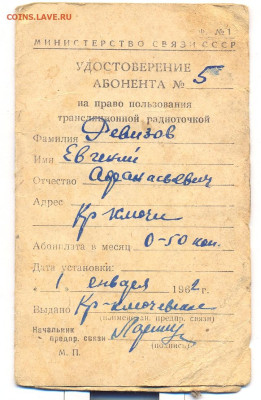 COINS.LAIV.RU
Ф. № 1
МИНИСТЕРСТВО СВЯЗИ СССР
УДОСТОВЕРЕНИЕ
АБОНЕНТА № 5
на право пользования
трансляционной радиоточкой
Фамилия Ревизов
Имя Евгений
Отчество Афанасьевич
Адрес
Кр-Ключи
Абонплата в месяц 0-50 коп.
Дата установки:
" 1 " января 1962 г.
Выдано Кр-Ключевским
(наименован. предпр. связи)
Начальник
предпр. связи
М. П. (подпись)